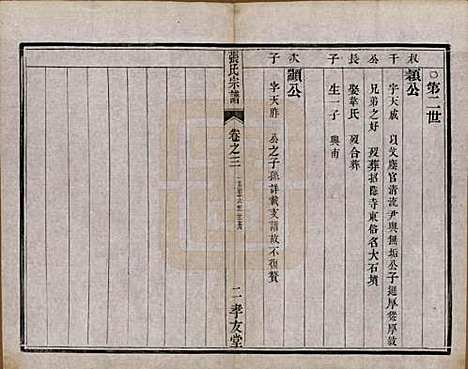 ○第二世
叔千公長子
類公
字天威 以文慶官清流尹與無垢公子
兄弟之好 歿葬招隱寺東俗名大石墳
娶辜氏 歿合葬
生一子 興南
次子
顯公
字天爵 公之子孫詳載支譜故不復贅
張氏宗譜
卷之三
二
孝友堂